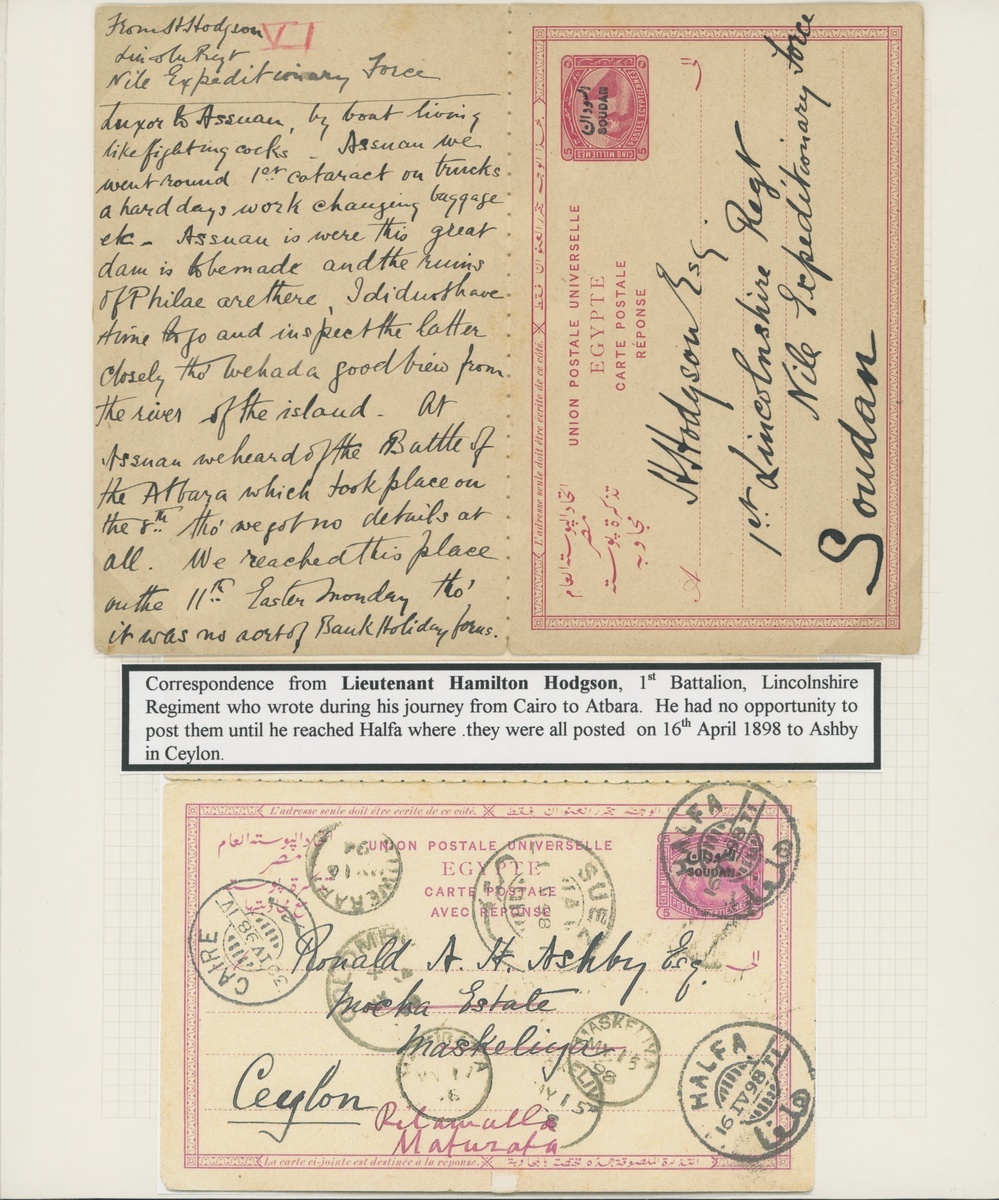 From H Hodgson
VI
Lincoln Regt
Nile Expeditionary Force
Luxor to Assuan, by boat living
like fighting cocks - Assuan we
went round 1st cataract on trucks
a hard days work changing baggage
etc - Assuan is were this great
dam is to be made and the ruins
of Philae are there, I did not have
time to go and inspect the latter
closely tho' we had a good view from
the river of the island. At
Assuan we heard of the Battle of
the Atbara which took place on
the 8th tho' we got no details at
all. We reached this place
on the 11th Easter Monday tho'
it was no sort of Bank Holiday for us.
L'adresse seule doit être écrite de ce côté.
السودان
SOUDAN
CINQ MILLIEMES
5
UNION POSTALE UNIVERSELLE
EGYPTE
CARTE POSTALE
RÉPONSE
اتحاد البوستة العام
مصر
تذكرة بوستة
مجاوبة
A
H Hodgson Esq.
1st Lincolnshire Regt
Nile Expeditionary Force
Soudan
Correspondence from Lieutenant Hamilton Hodgson, 1st Battalion, Lincolnshire
Regiment who wrote during his journey from Cairo to Atbara. He had no opportunity to
post them until he reached Halfa where .they were all posted on 16th April 1898 to Ashby
in Ceylon.
L'adresse seule doit être écrite de ce côté.
اتحاد البوستة العام
مصر
UNION POSTALE UNIVERSELLE
EGYPTE
CARTE POSTALE
AVEC RÉPONSE
السودان
SOUDAN
5
HALFA
حلفا
SUEZ
CAIRE
IV 98
Ronald A. H. Ashby Esq.
Mocha Estate
Maskeliya
Ceylon
Rilamulla
Maturata
MASKELIYA
MY 15
98
HALFA
16 IV 98 T1
حلفا
La carte ci-jointe est destinée à la réponse.